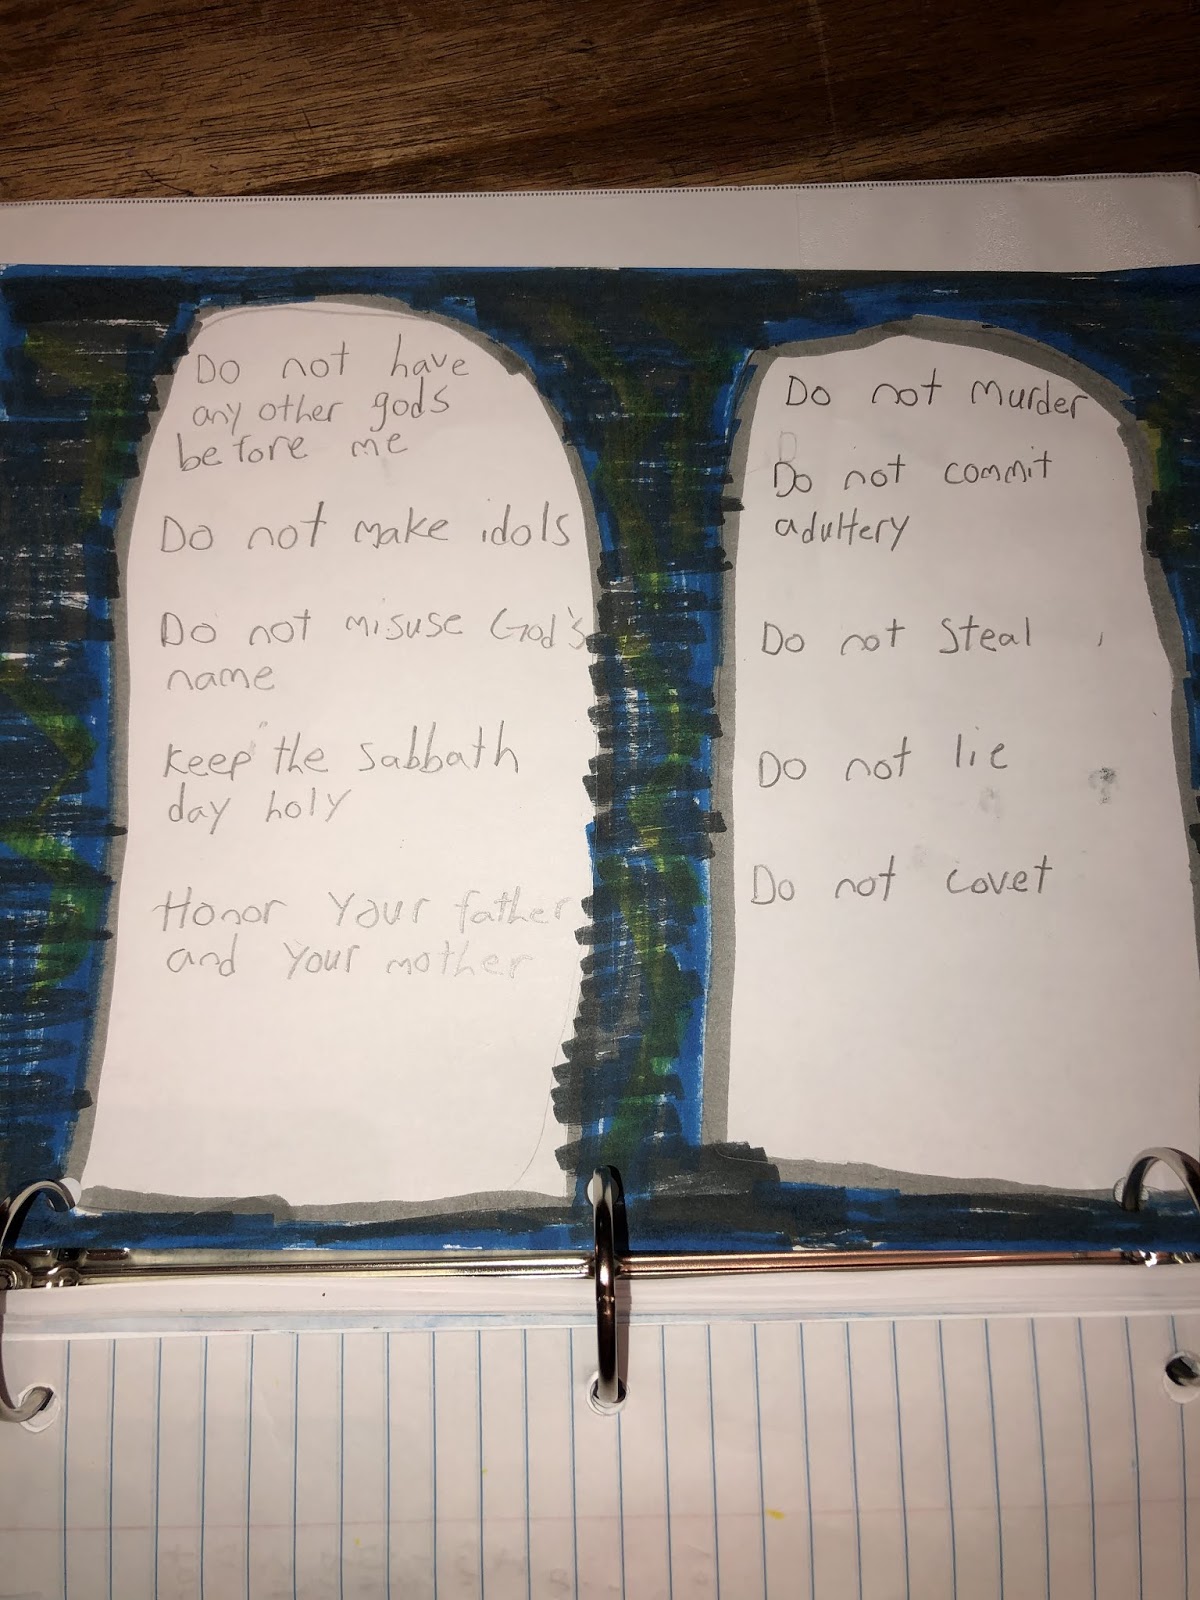 Do not have
any other gods
before me
Do not make idols
Do not misuse God's
name
Keep the sabbath
day holy
Honor Your father
and Your mother
Do not murder
Do not commit
adultery
Do not steal
Do not lie
Do not covet